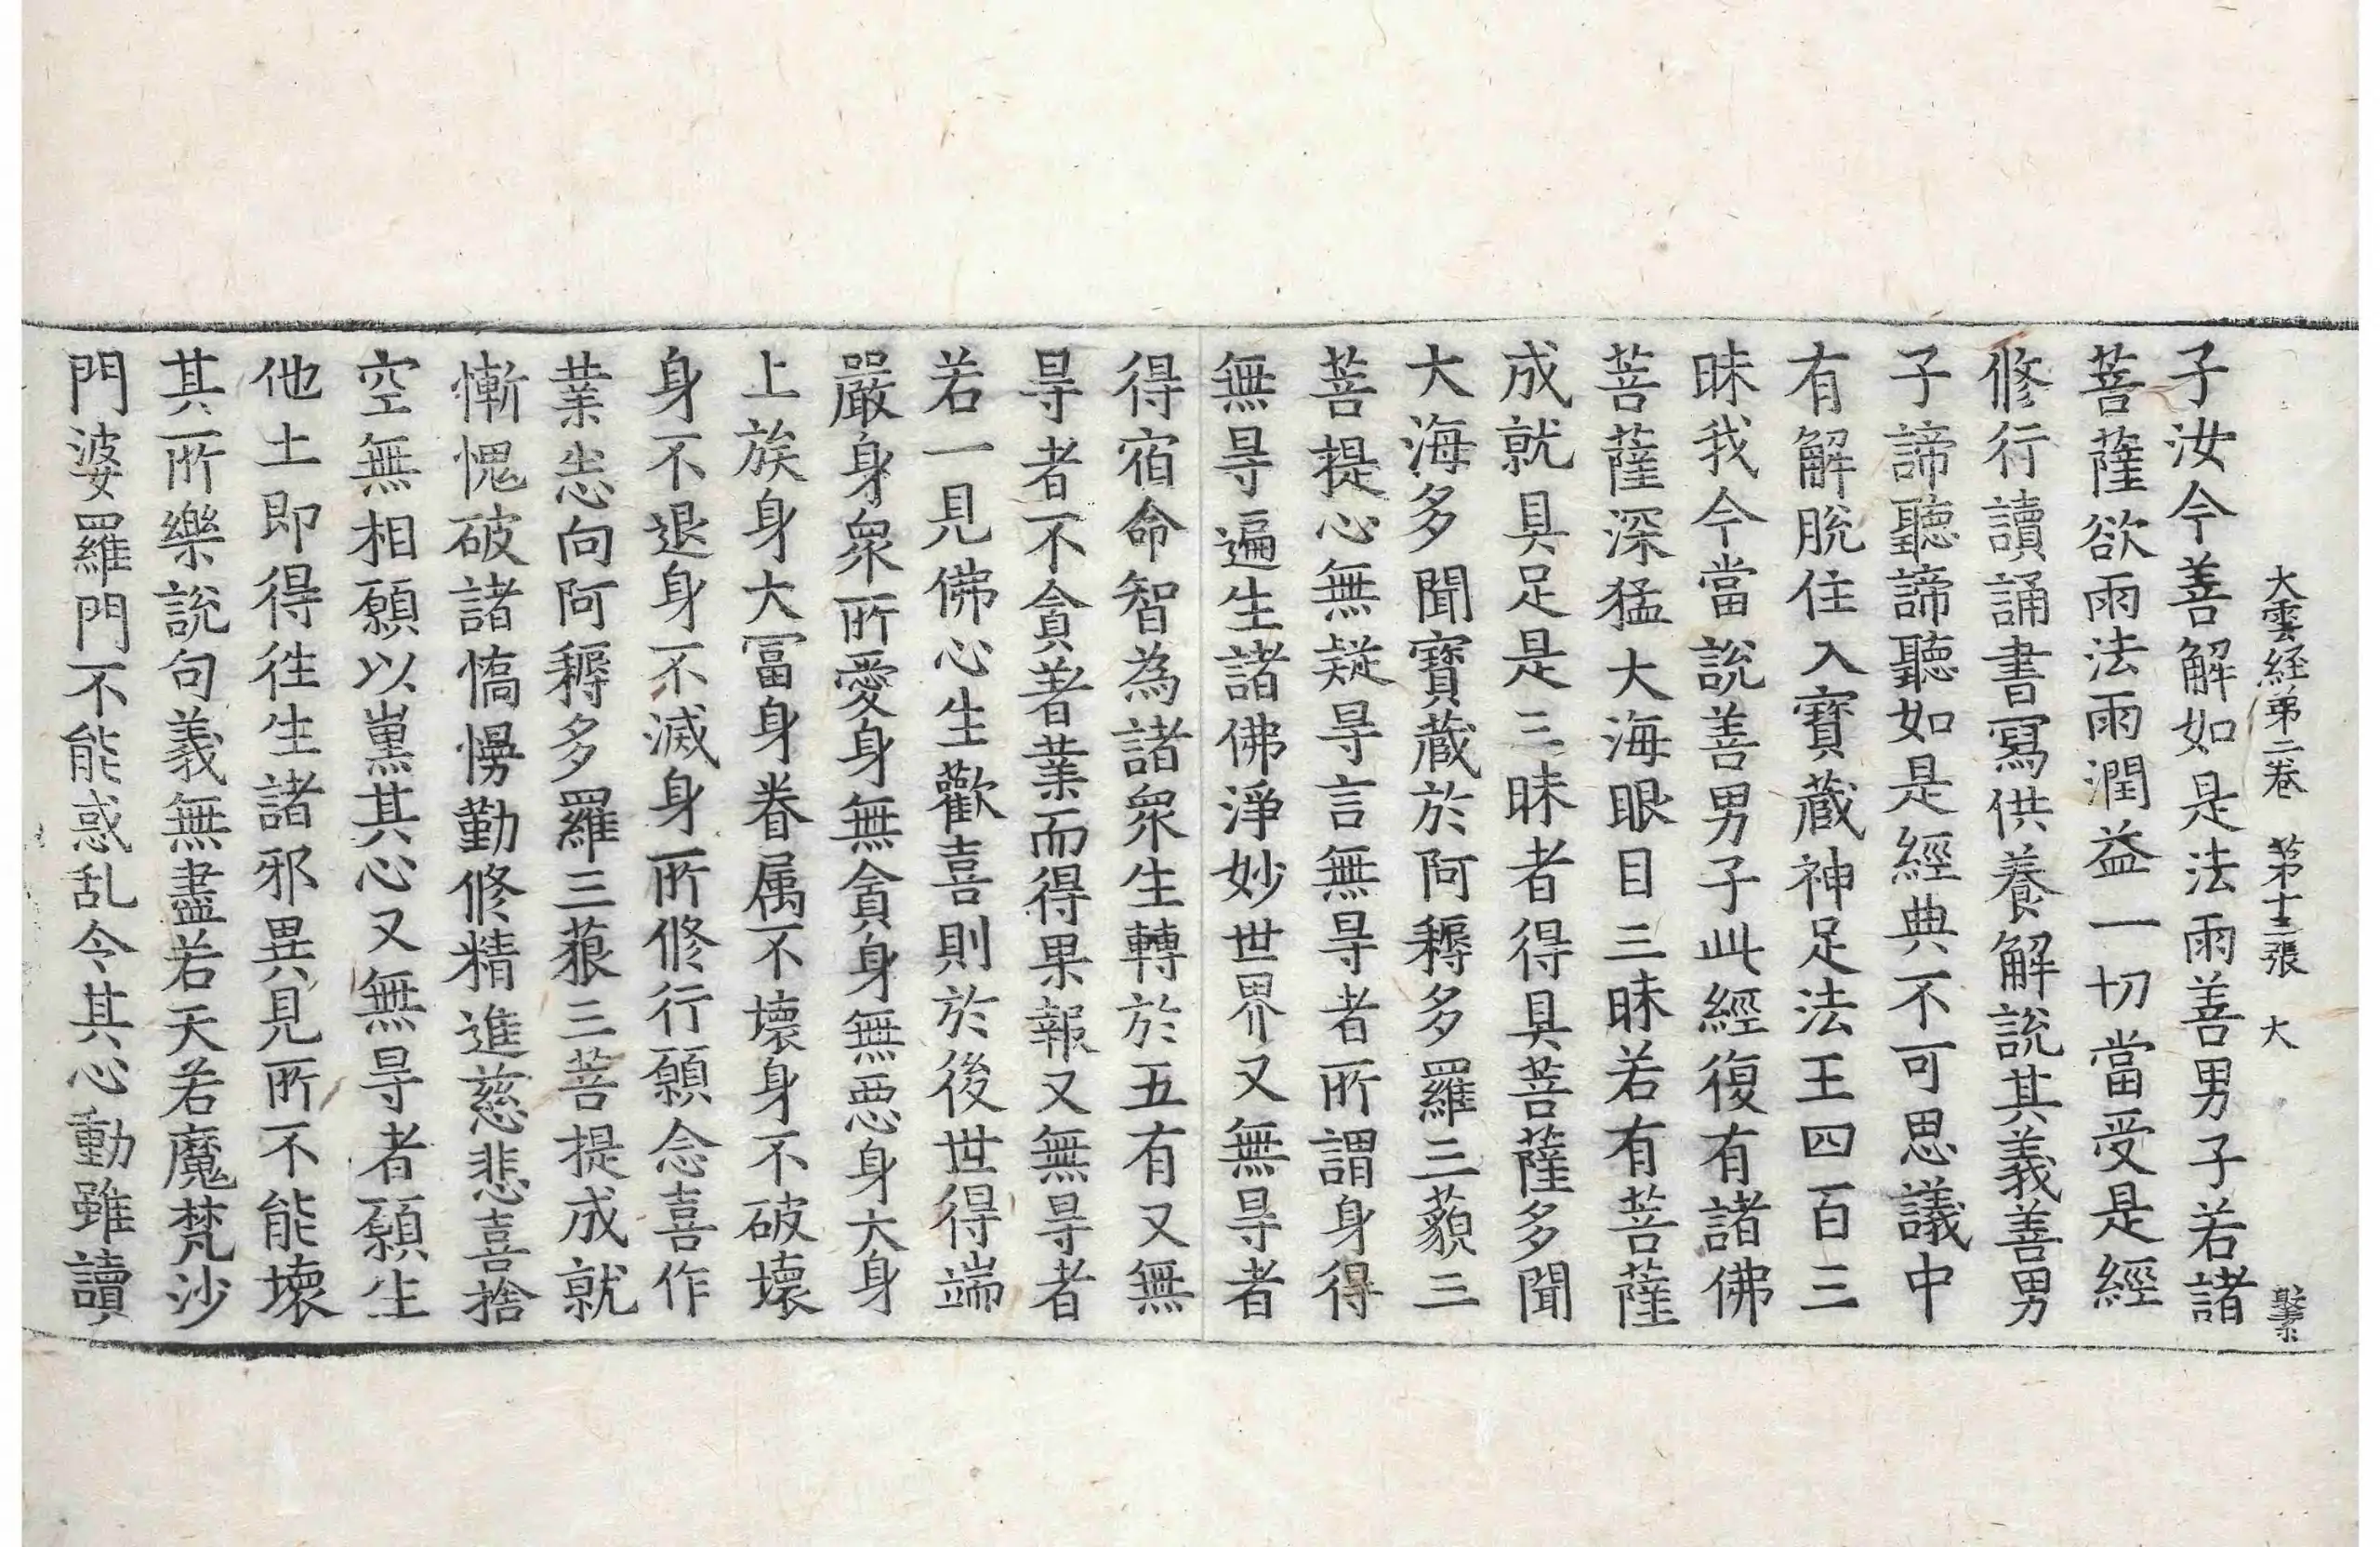 大雲経第二巻 第十三張 大
子汝今善解如是法雨善男子若諸
菩薩欲雨法雨潤益一切當受是經
修行讀誦書寫供養解説其義善男
子諦聽諦聽如是經典不可思議中
有解脫住入寶蔵神足法王四百三
昧我今當說善男子此經復有諸佛
菩薩深猛大海眼目三昧若有菩薩
成就具足是三昧者得具菩薩多聞
大海多聞寶蔵於阿耨多羅三藐三
菩提心無疑㝵言無㝵者所謂身得
無㝵遍生諸佛淨妙世界又無㝵者
得宿命智為諸衆生轉於五有又無
㝵者不貪著業而得果報又無㝵者
若一見佛心生歡喜則於後世得端
嚴身衆所愛身無貪身無悪身大身
上族身大冨身眷属不壞身不破壞
身不退身不滅身所修行願念喜作
業志向阿耨多羅三藐三菩提成就
慚愧破諸憍慢勤修精進慈悲喜捨
空無相願以熏其心又無㝵者願生
他土即得徃生諸邪異見所不能壞
其所樂說句義無盡若天若魔梵沙
門婆羅門不能惑乱令其心動雖讀